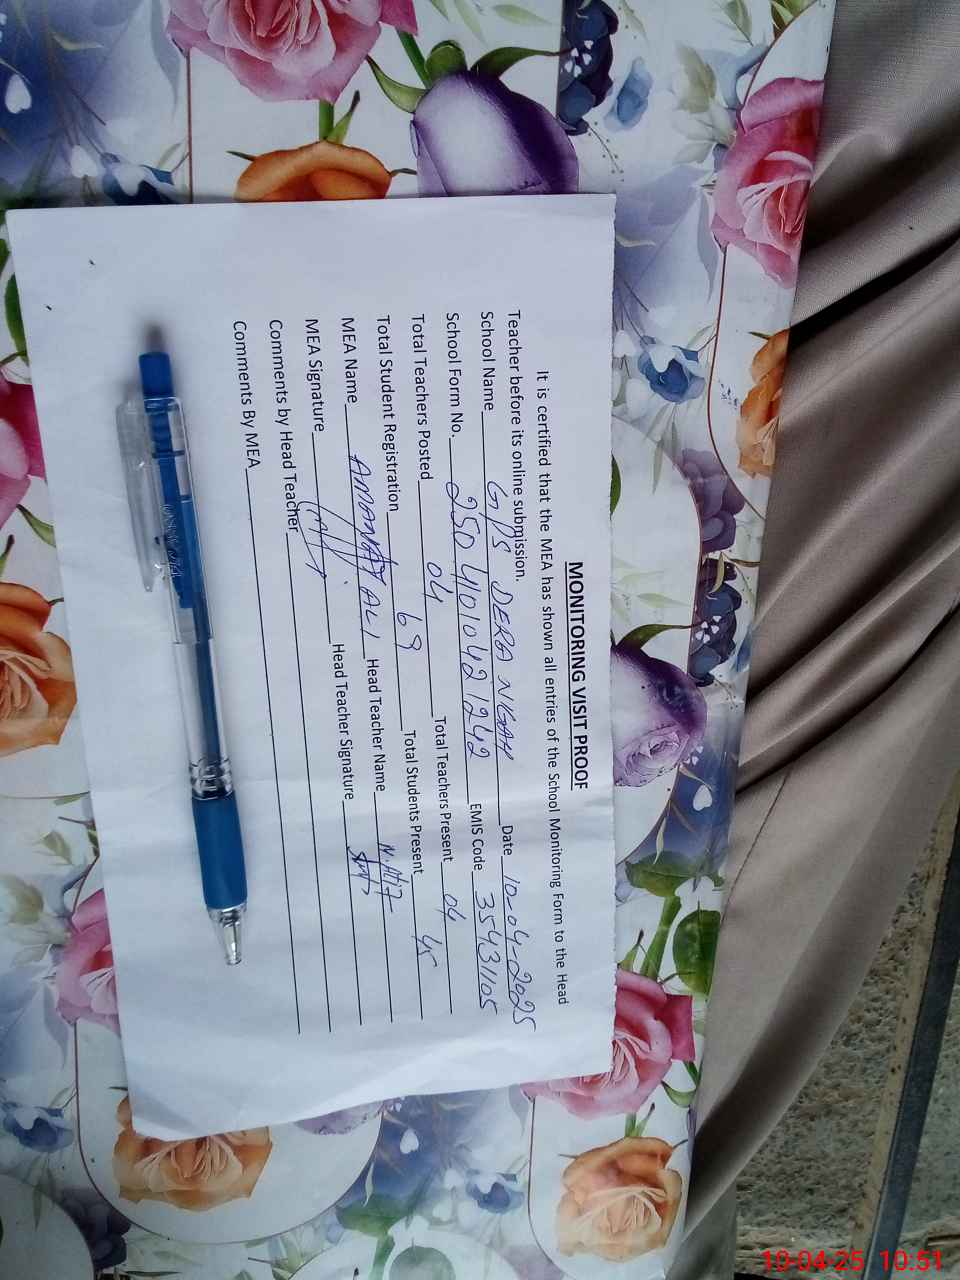 MONITORING VISIT PROOF
It is certified that the MEA has shown all entries of the School Monitoring Form to the Head
Teacher before its online submission.
School Name GPS DERA NGAH Date 10-04-2025
School Form No. 25041010421242 EMIS Code 35431105
Total Teachers Posted 04 Total Teachers Present 04
Total Student Registration 69 Total Students Present 45
MEA Name AMANAT ALI Head Teacher Name M. Atif
MEA Signature Head Teacher Signature
Comments by Head Teacher
Comments By MEA
10-04-25 10:51